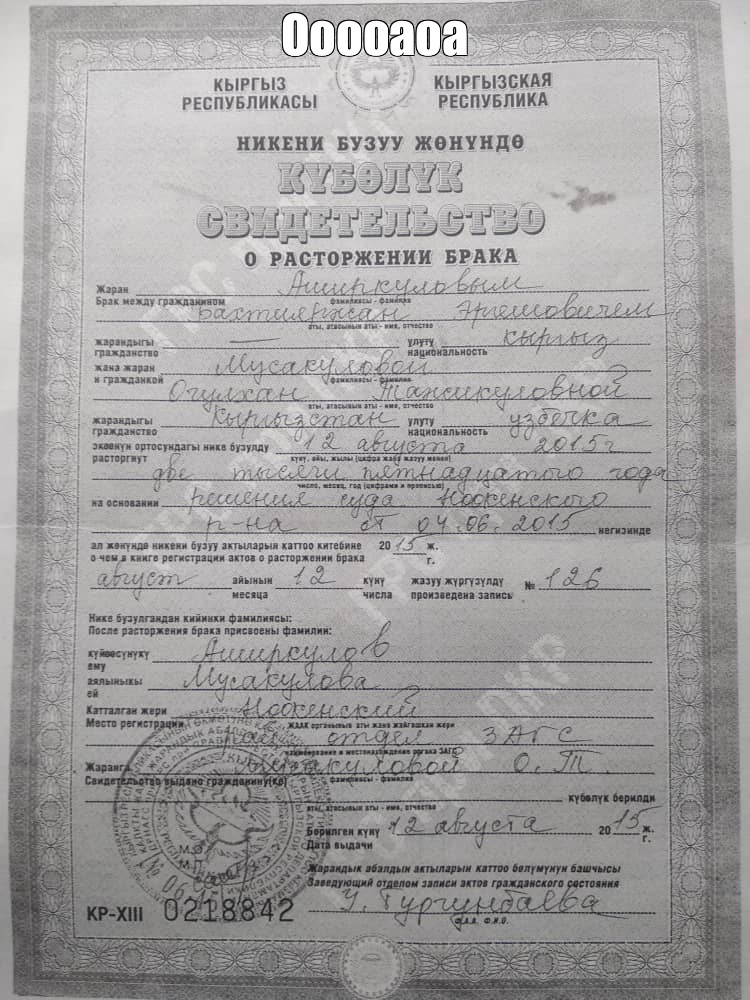 Ooooaoa
КЫРГЫЗ РЕСПУБЛИКАСЫ
КЫРГЫЗСКАЯ РЕСПУБЛИКА
НИКЕНИ БУЗУУ ЖӨНҮНДӨ
КҮБӨЛҮК
СВИДЕТЕЛЬСТВО
О РАСТОРЖЕНИИ БРАКА
Жаран Аширкуловым
Брак между гражданином фамилиясы - фамилия
Бахтияржан Эргешовичем
аты, атасынын аты - имя, отчество
жарандыгы — улуту кыргыз
гражданство национальность
жана жаран Мусакуловой
и гражданкой фамилиясы - фамилия
Огулхан Тажикуловной
аты, атасынын аты - имя, отчество
жарандыгы Кыргызстан улуту узбечка
гражданство национальность
экөөнүн ортосундагы нике бузулду 12 августа 2015г
расторгнут күнү, айы, жылы (цифра жана жазуу менен)
две тысячи пятнадцатого года
число, месяц, год (цифрами и прописью)
на основании решения суда Ноокенского
р-на от 04.06.2015 негизинде
ал жөнүндө никени бузуу актыларын каттоо китебине 2015 ж.
о чем в книге регистрации актов о расторжении брака г.
август айынын 12 күнү жазуу жүргүзүлдү № 126
месяца числа произведена запись
Нике бузулгандан кийинки фамилиясы:
После расторжения брака присвоены фамилии:
күйөөсүнүкү Аширкулов
ему
аялыныкы Мусакулова
ей
Катталган жери Ноокенский
Место регистрации ЖААК органынын аты жана жайгашкан жери
рай отдел ЗАГС
наименование и местонахождение органа ЗАГС
Жаранга Мусакуловой О.Т.
Свидетельство выдано гражданину(ке) фамилиясы - фамилия
күбөлүк берилди
аты, атасынын аты - имя, отчество
Берилген күнү 12 августа 2015 ж.
Дата выдачи г.
М.О.
М.П.
Жарандык абалдын актыларын каттоо бөлүмүнүн башчысы
Заведующий отделом записи актов гражданского состояния
У. Тургунбаева
Ф.А.А. Ф.И.О.
КР-XIII 0218842